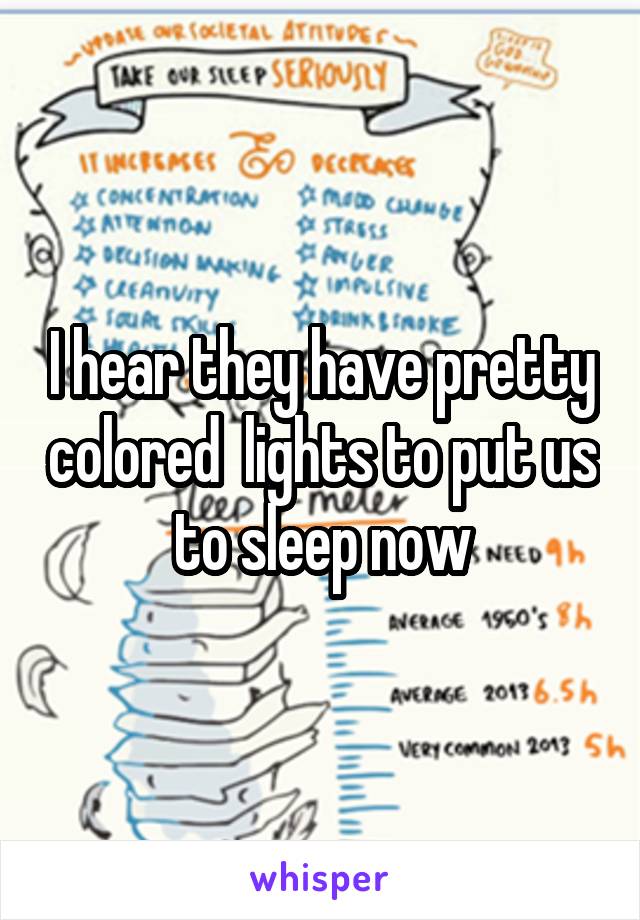 UPDATE OUR SOCIETAL ATTITUDES
TAKE OUR SLEEP SERIOUSLY
IT INCREASES & DECREASES
CONCENTRATION
MOOD CHANGE
ATTENTION
STRESS
DECISION MAKING
ANGER
CREATIVITY
IMPULSIVE
SOCIAL SKILLS
DRINK & SMOKE
I hear they have pretty
colored lights to put us
to sleep now
Sleep meter
NEED 9h
AVERAGE 1950's 8h
AVERAGE 2013 6.5h
VERY COMMON 2013 5h
whisper